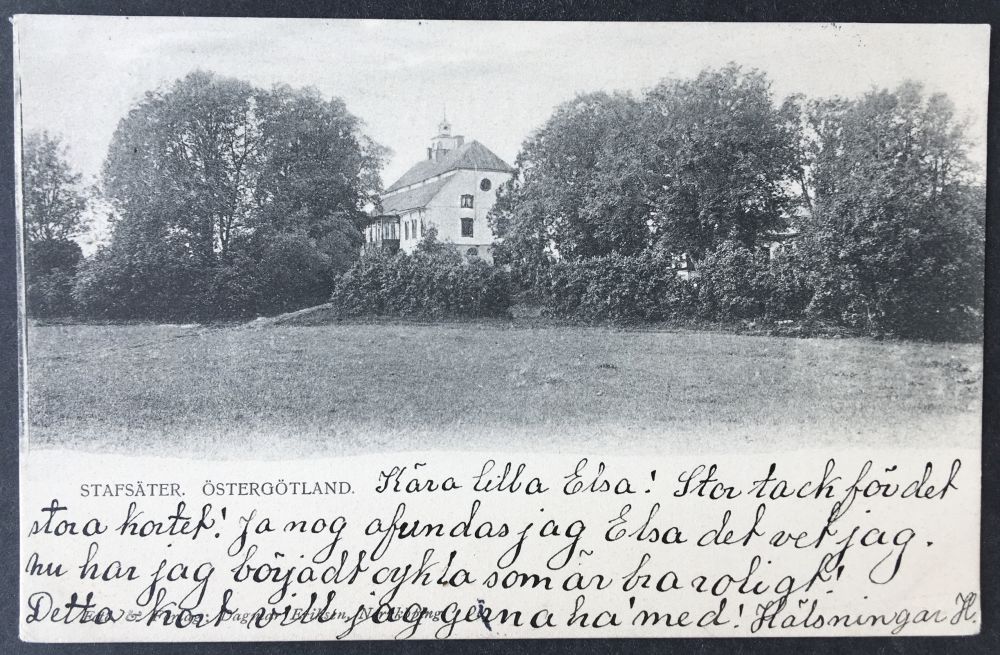 STAFSÄTER. ÖSTERGÖTLAND. Kära lilla Elsa! Stor tack för det
stora kortet! Ja nog afundas jag Elsa det vet jag.
nu har jag börjadt cykla som är bra roligt!
Detta kort vill jag gerna ha med! Hälsningar H.
Förlag: Dagmar Eriksen, Norrköping.